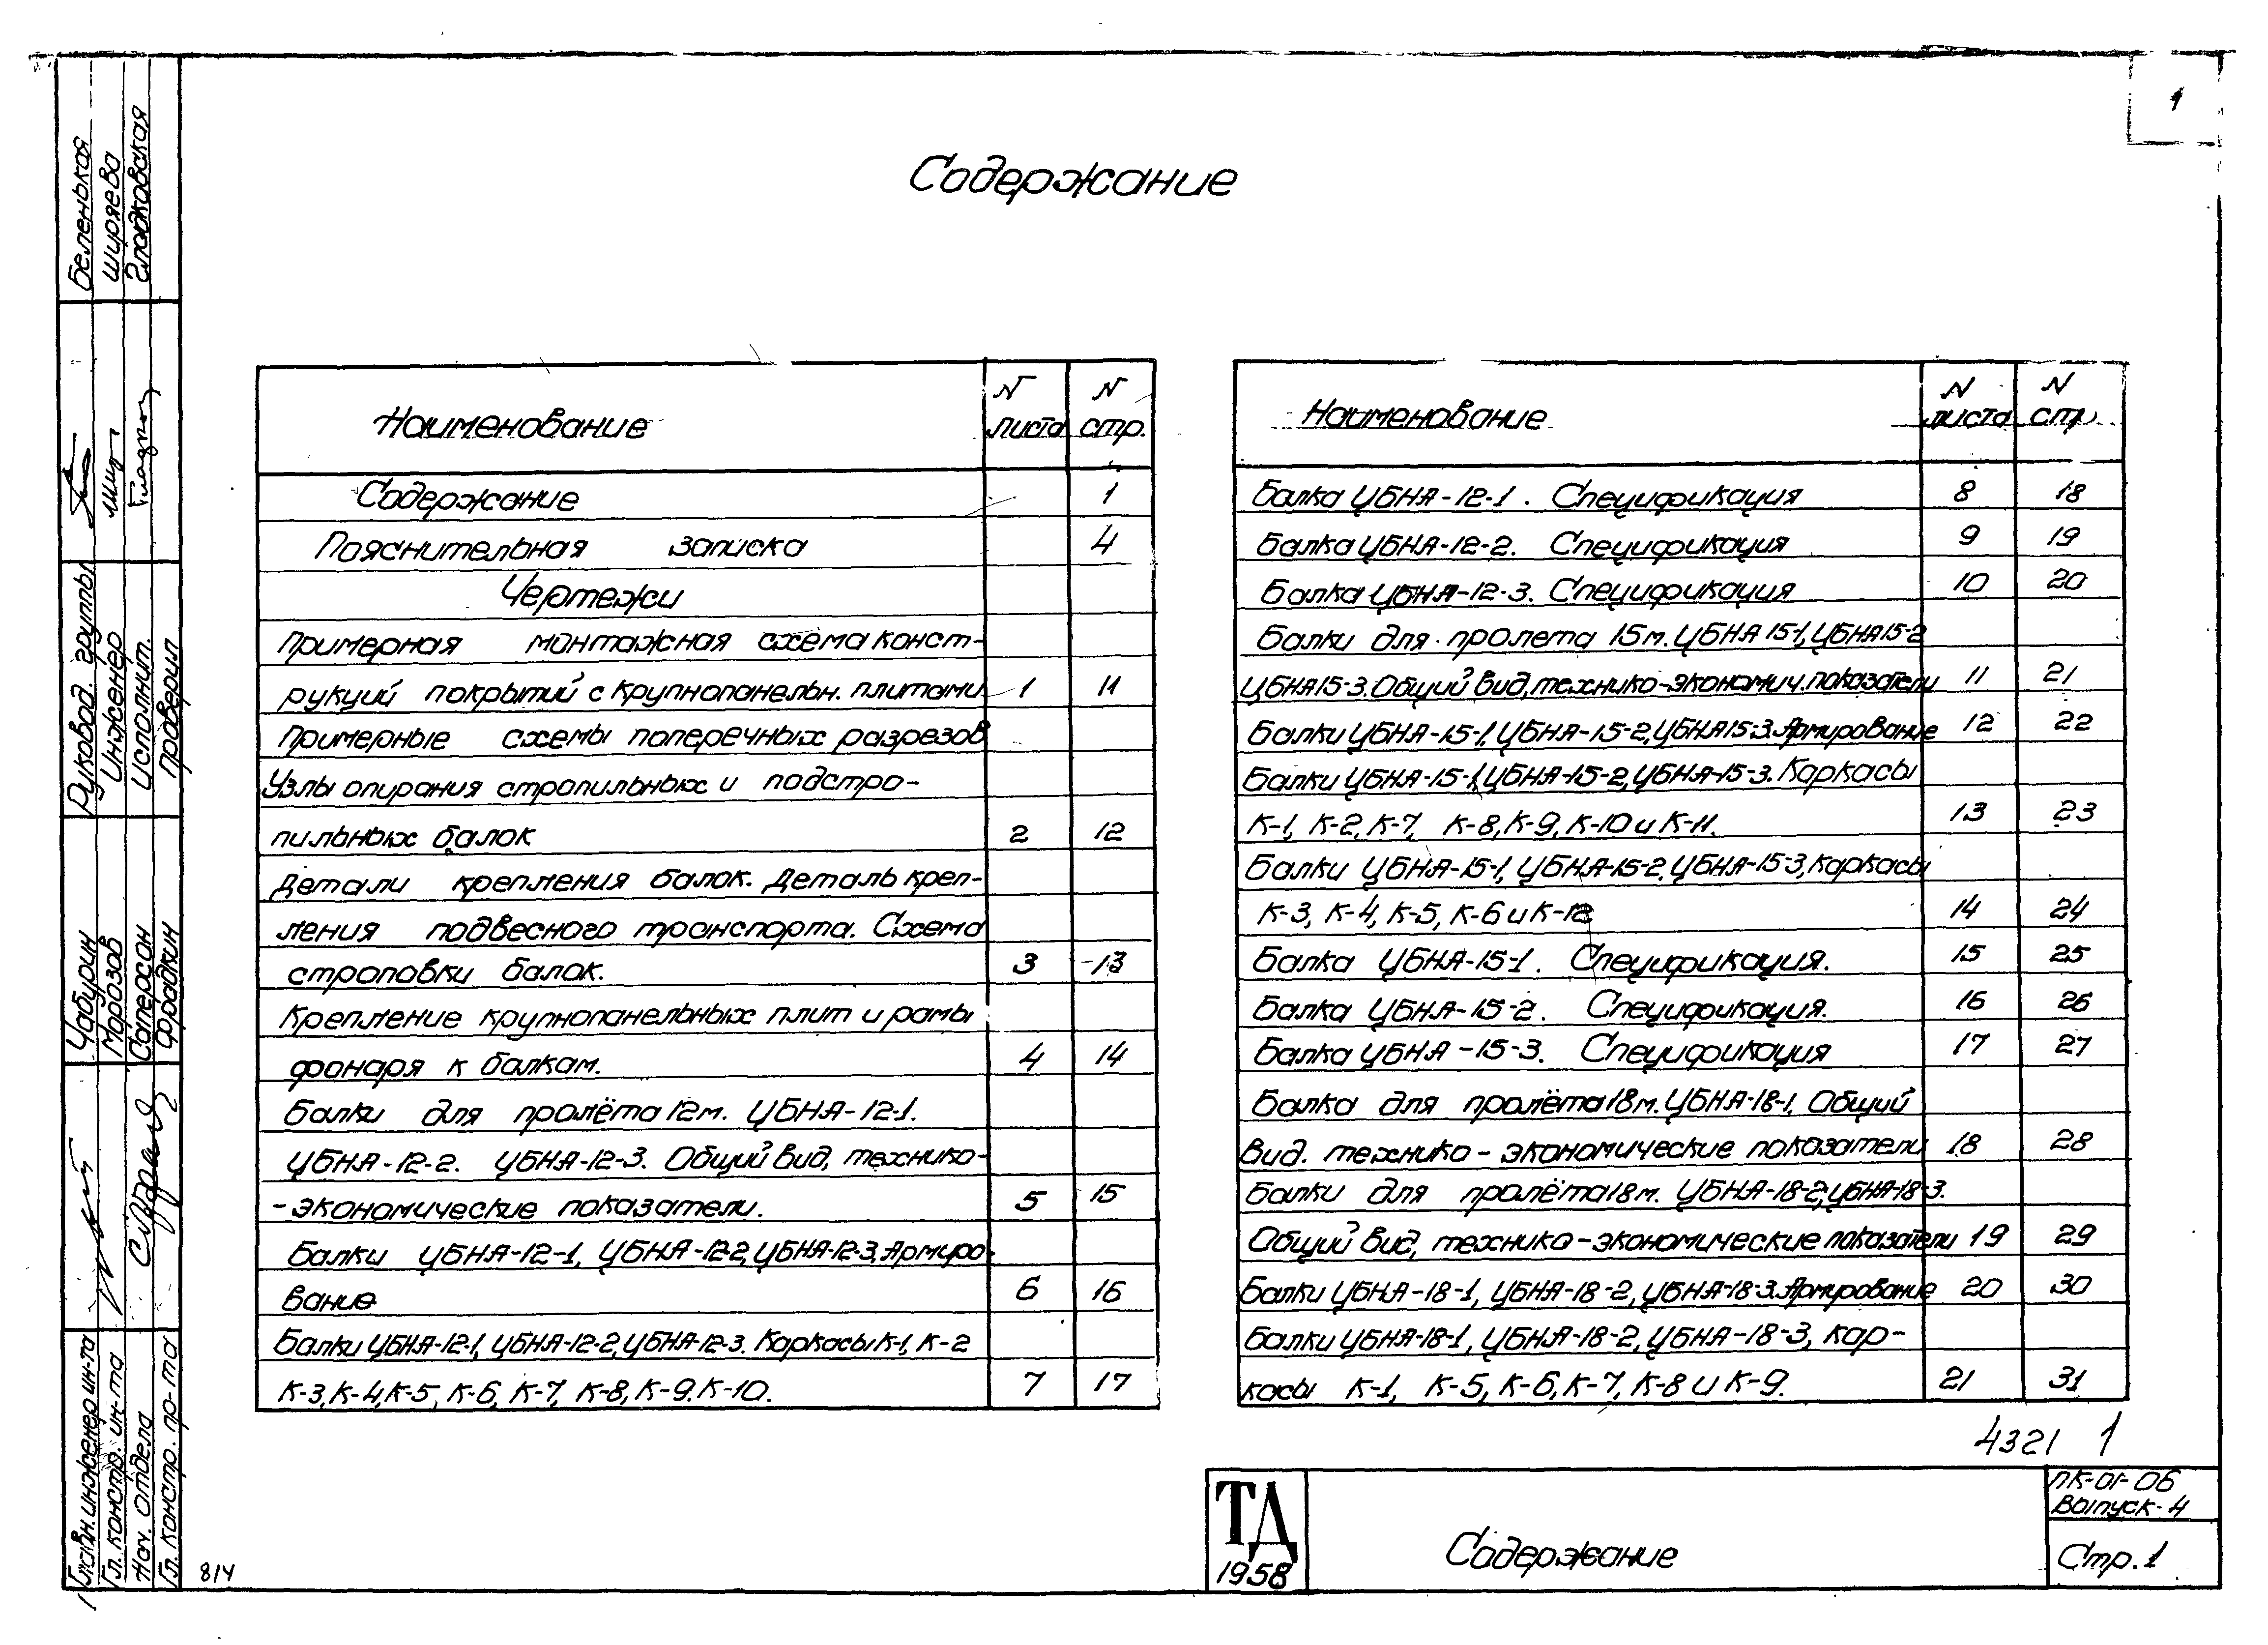 1
Содержание
Наименование
N листа
N стр.
Содержание 1
Пояснительная записка 4
Чертежи
Примерная монтажная схема конст-
рукций покрытий с крупнопанельн. плитами 1 11
Примерные схемы поперечных разрезов
Узлы опирания стропильных и подстро-
пильных балок 2 12
Детали крепления балок. Деталь креп-
ления подвесного транспорта. Схема
строповки балок. 3 13
Крепление крупнопанельных плит и рамы
фонаря к балкам. 4 14
Балки для пролёта 12м. ЦБНА-12-1.
ЦБНА-12-2. ЦБНА-12-3. Общий вид, технико-
-экономические показатели. 5 15
Балки ЦБНА-12-1, ЦБНА-12-2, ЦБНА-12-3, Армиро-
вание 6 16
Балки ЦБНА-12-1, ЦБНА-12-2, ЦБНА-12-3. Каркасы К-1, К-2
К-3, К-4, К-5, К-6, К-7, К-8, К-9. К-10. 7 17
Наименование
N листа
N стр.
Балка ЦБНА-12-1. Спецификация 8 18
Балка ЦБНА-12-2. Спецификация 9 19
Балка ЦБНА-12-3. Спецификация 10 20
Балки для пролета 15м. ЦБНА 15-1, ЦБНА 15-2
ЦБНА 15-3. Общий вид, технико-экономич. показатели 11 21
Балки ЦБНА-15-1, ЦБНА-15-2, ЦБНА 15-3. Армирование 12 22
Балки ЦБНА-15-1, ЦБНА-15-2, ЦБНА-15-3. Каркасы
К-1, К-2, К-7, К-8, К-9, К-10 и К-11. 13 23
Балки ЦБНА-15-1, ЦБНА-15-2, ЦБНА-15-3, каркасы
К-3, К-4, К-5, К-6 и К-12 14 24
Балка ЦБНА-15-1. Спецификация. 15 25
Балка ЦБНА-15-2. Спецификация. 16 26
Балка ЦБНА-15-3. Спецификация 17 27
Балка для пролёта 18м. ЦБНА-18-1, Общий
вид. технико-экономические показатели 18 28
Балки для пролёта 18м. ЦБНА-18-2, ЦБНА-18-3.
Общий вид, технико-экономические показатели 19 29
Балки ЦБНА-18-1, ЦБНА-18-2, ЦБНА-18-3. Армирование 20 30
Балки ЦБНА-18-1, ЦБНА-18-2, ЦБНА-18-3, кар-
касы К-1, К-5, К-6, К-7, К-8 и К-9. 21 31
4321 1
ТД
1958
Содержание
ПК-01-06
Выпуск-4
Стр. 1
814
Главн. инженер ин-та Чабурин Руковод. группы Беленькая
Гл. констр. ин-та Морозов Инженер Ширяева
Нач. отдела Саперсон Исполнит. Гладковская
Гл. констр. пр-та Фрадкин Проверил